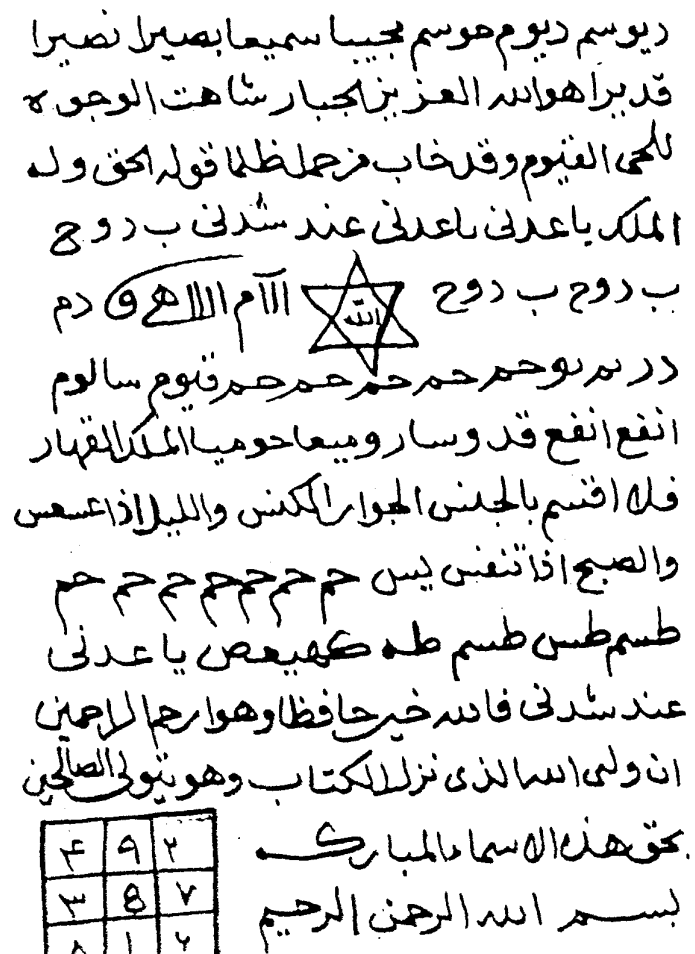 ديوسم ديوم حوسم مجيبا سميعا بصيرا نصيرا
قديرا هو الله العزيز الجبار شاهت الوجوه
للحى القيوم وقد خاب من حمل ظلما قوله الحق وله
الملك ياعدنى ياعدنى عند شدنى ب د و ح
ب د و ح ب د و ح الله
حم حم حم حم حم قيوم سالوم
انفع انفع قدوسا روميعا حوميا الملك القهار
فلا اقسم بالخنس الجوار الكنس والليل اذا عسعس
والصبح اذا تنفس يس حم حم حم حم حم حم حم
طسم طس طسم طه كهيعص ياعدنى
عند شدنى فالله خير حافظا وهو ارحم الراحمين
ان ولى الله الذى نزل الكتاب وهو يتولى الصالحين
بحق هذه الاسماء المباركه
٤ ٩ ٢
بسم الله الرحمن الرحيم
٣ 8 ٧